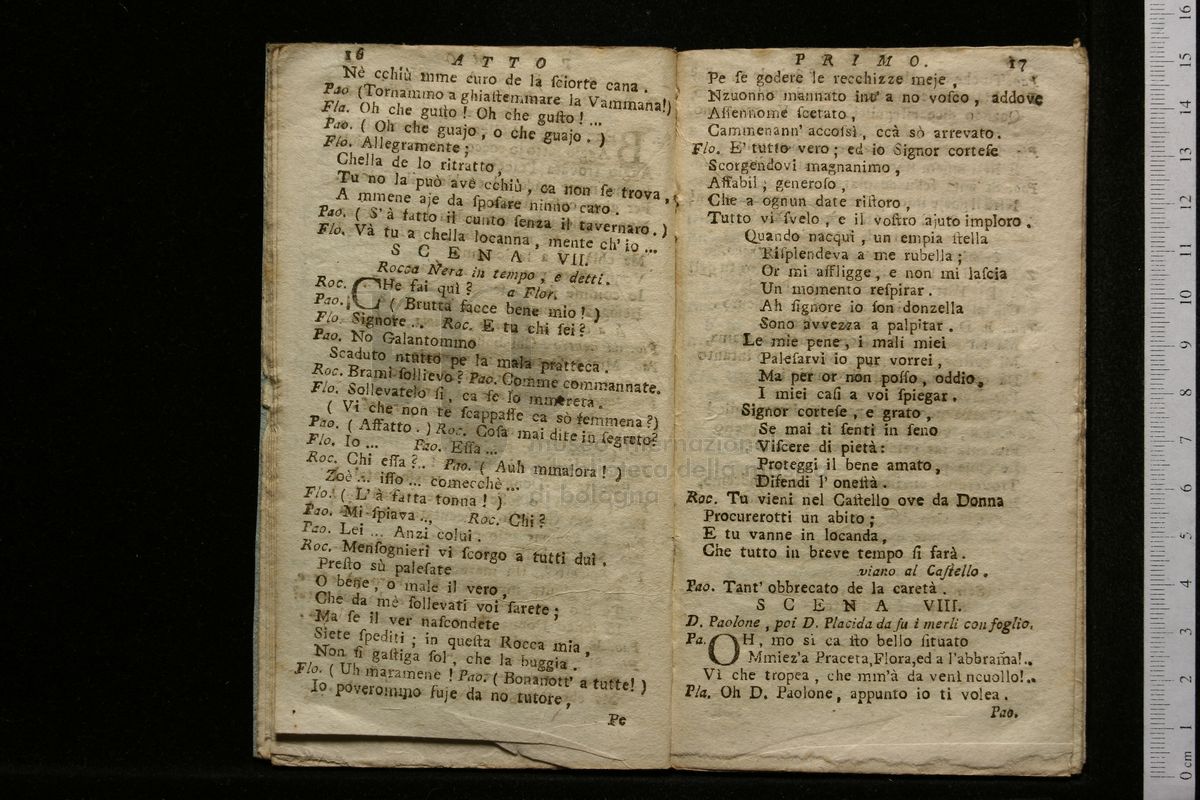 16 ATTO
Nè cchiù mme curo de la ſciorte cana.
Pao (Tornammo a ghiaſtemmare la Vammana!)
Fla. Oh che guſto! Oh che guſto!...
Pao. (Oh che guajo, o che guajo.)
Flo. Allegramente;
Chella de lo ritratto,
Tu no la può avè cchiù, ca non ſe trova,
A mmene aje da ſpoſare ninno caro.
Pao. (S'à fatto il cunto ſenza il tavernaro.)
Flo. Và tu a chella locanna, mente ch'io...
SCENA VII.
Rocca Nera in tempo, e detti.
Roc. CHe fai quì? a Flor.
Pao. (Brutta facce bene mio!)
Flo. Signore... Roc. E tu chi ſei?
Pao. No Galantommo
Scaduto ntutto pe la mala pratteca.
Roc. Brami ſollievo? Pao. Comme commannate.
Flo. Sollevatelo ſi, ca ſe lo mmereta.
(Vi che non te ſcappaſſe ca sò femmena?)
Pao. (Affatto.) Roc. Coſa mai dite in ſegreto?
Flo. Io... Pao. Eſſa...
Roc. Chi eſſa?.. Pao. (Auh mmalora!)
Zoè... iſſo... comecchè...
Flo. (L'à fatta tonna!)
Pao. Mi ſpiava.., Roc. Chi?
Pao. Lei... Anzi colui.
Roc. Menſognieri vi ſcorgo a tutti dui.
Preſto sù paleſate
O bene, o male il vero,
Che da mè ſollevati voi ſarete;
Ma ſe il ver naſcondete
Siete ſpediti; in queſta Rocca mia,
Non ſi gaſtiga ſol, che la buggia.
Flo. (Uh maramene! Pao. (Bonanott' a tutte!)
Io poverommo fuje da no tutore,
Pe
PRIMO. 17
Pe ſe godere le recchizze meje,
Nzuonno mannato int' a no voſco, addove
Aſſennome ſcetato,
Cammenann' accoisì, ccà sò arrevato.
Flo. E' tutto vero; ed io Signor corteſe
Scorgendovi magnanimo,
Affabil; generoſo,
Che a ognun date riſtoro,
Tutto vi ſvelo, e il voſtro ajuto imploro.
Quando nacqui, un empia ſtella
Riſplendeva a me rubella;
Or mi affligge, e non mi laſcia
Un momento reſpirar.
Ah ſignore io ſon donzella
Sono avvezza a palpitar.
Le mie pene, i mali miei
Paleſarvi io pur vorrei,
Ma per or non poſſo, oddio,
I miei caſi a voi ſpiegar.
Signor corteſe, e grato,
Se mai ti ſenti in ſeno
Viſcere di pietà:
Proteggi il bene amato,
Difendi l' oneſtà.
Roc. Tu vieni nel Caſtello ove da Donna
Procurerotti un abito;
E tu vanne in locanda,
Che tutto in breve tempo ſi farà.
viano al Caſtello.
Pao. Tant' obbrecato de la caretà.
SCENA VIII.
D. Paolone, poi D. Placida da ſu i merli con foglio.
Pa. OH, mo si ca ſto bello ſituato
Mmiez'a Praceta, Flora, ed a l'abbrama!..
Vì che tropea, che mm'à da venì ncuollo!..
Pla. Oh D. Paolone, appunto io ti volea.
Pao.